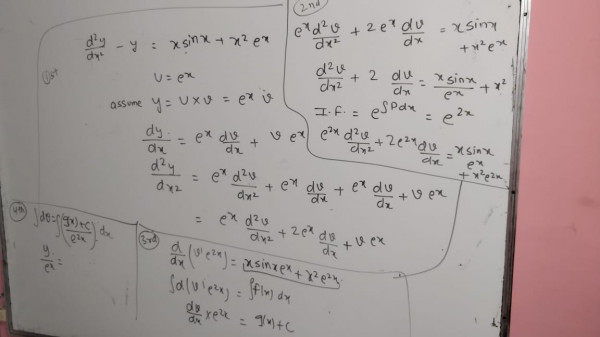 1st
d²y/dx² - y = x sin x + x² eˣ
U = eˣ
assume y = U × v = eˣ v
dy/dx = eˣ dv/dx + v eˣ
d²y/dx² = eˣ d²v/dx² + eˣ dv/dx + eˣ dv/dx + v eˣ
= eˣ d²v/dx² + 2eˣ dv/dx + v eˣ
2nd
eˣ d²v/dx² + 2eˣ dv/dx = x sin x
+ x² eˣ
d²v/dx² + 2 dv/dx = x sin x/eˣ + x²
I.F. = e^∫Pdx = e²ˣ
e²ˣ d²v/dx² + 2e²ˣ dv/dx = x sin x eˣ
+ x² e²ˣ
3rd
d/dx (v' e²ˣ) = x sin x eˣ + x² e²ˣ
∫d(v' e²ˣ) = ∫f(x) dx
dv/dx × e²ˣ = g(x) + c
4th
∫dv = ∫(g(x)+c/e²ˣ) dx
y/eˣ =